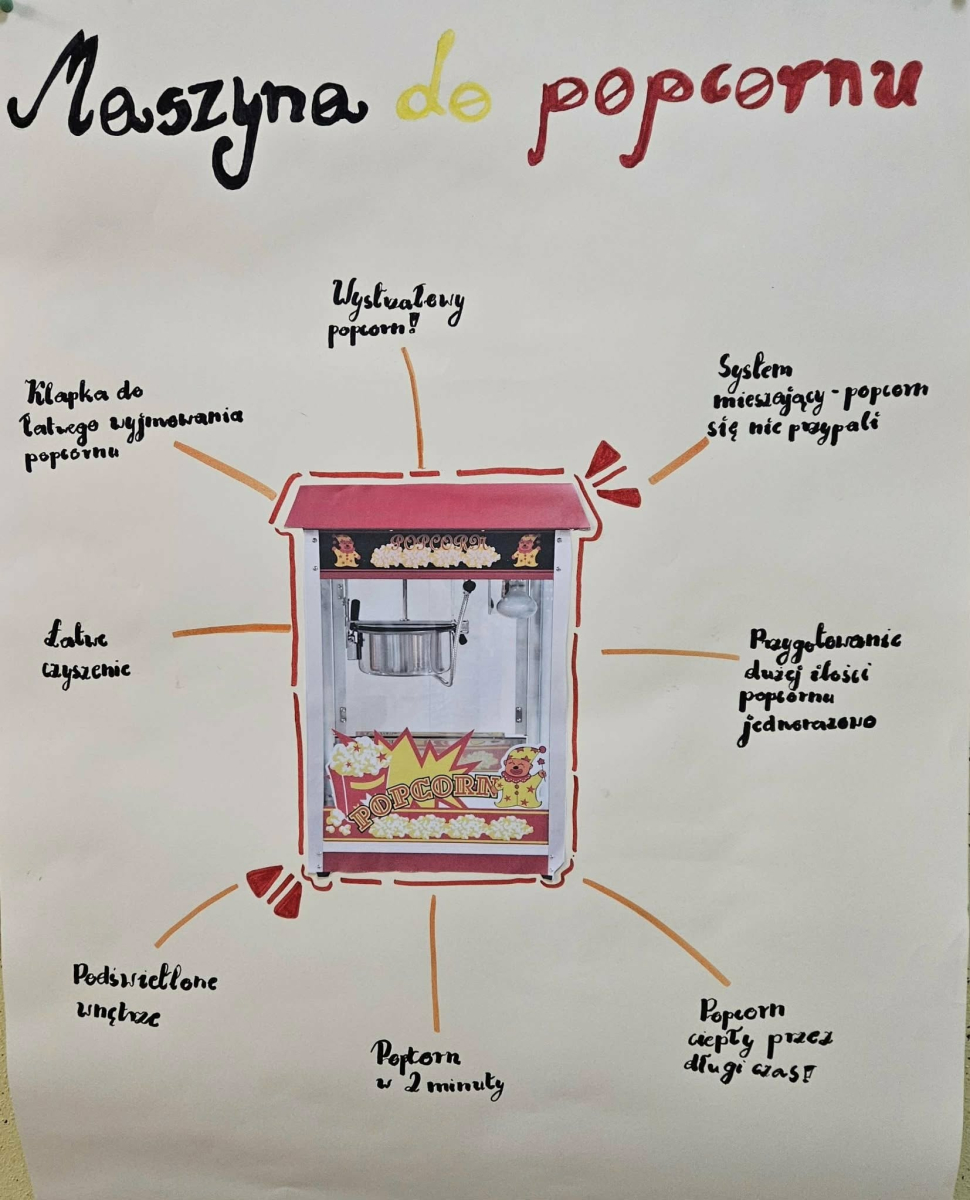 Maszyna do popcornu
Wystrzałowy
popcorn!
Klapka do
łatwego wyjmowania
popcornu
System
mieszający - popcorn
się nie przypali
POPCORN
Łatwe
czyszenie
Przygotowanie
dużej ilości
popcornu
jednorazowo
POPCORN
Podświetlone
wnętrze
Popcorn
w 2 minuty
Popcorn
ciepły przez
długi czas!